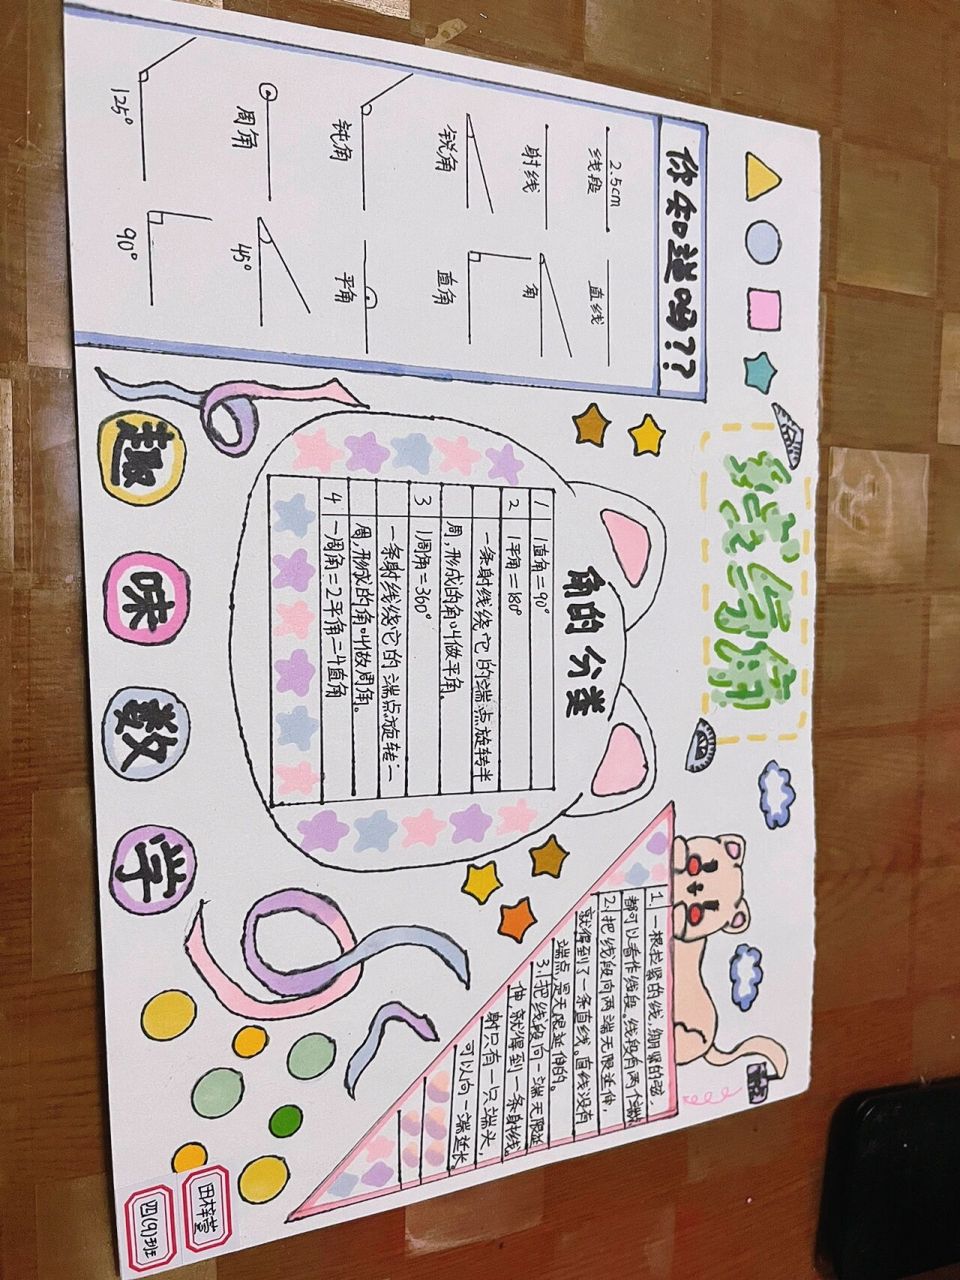 线与角
你知道吗??
2.5cm
线段
直线
射线
角
锐角
直角
钝角
平角
周角
45°
125°
90°
角的分类
1 1直角=90°
2 1平角=180°
一条射线绕它的端点旋转半
周,形成的角叫做平角。
3 1周角=360°
一条射线绕它的端点旋转一
周,形成的角叫做周角。
4 一周角=2平角=4直角
1. 一根拉紧的线、绷紧的弦,
都可以看作线段。线段有两个端
2. 把线段向两端无限延伸,
就得到了一条直线。直线没有
端点,是无限延伸的。
3. 把线段向一端无限延
伸,就得到一条射线。
射只有一只端头,
可以向一端延长。
趣
味
数
学
田梓萱
四(9)班